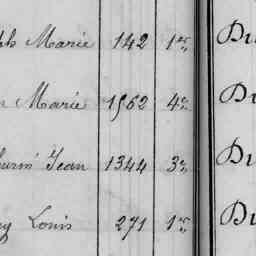 Marie 142 1er Du
Marie 1562 4e Du
Jean 1344 3e Du
Louis 271 1er Du